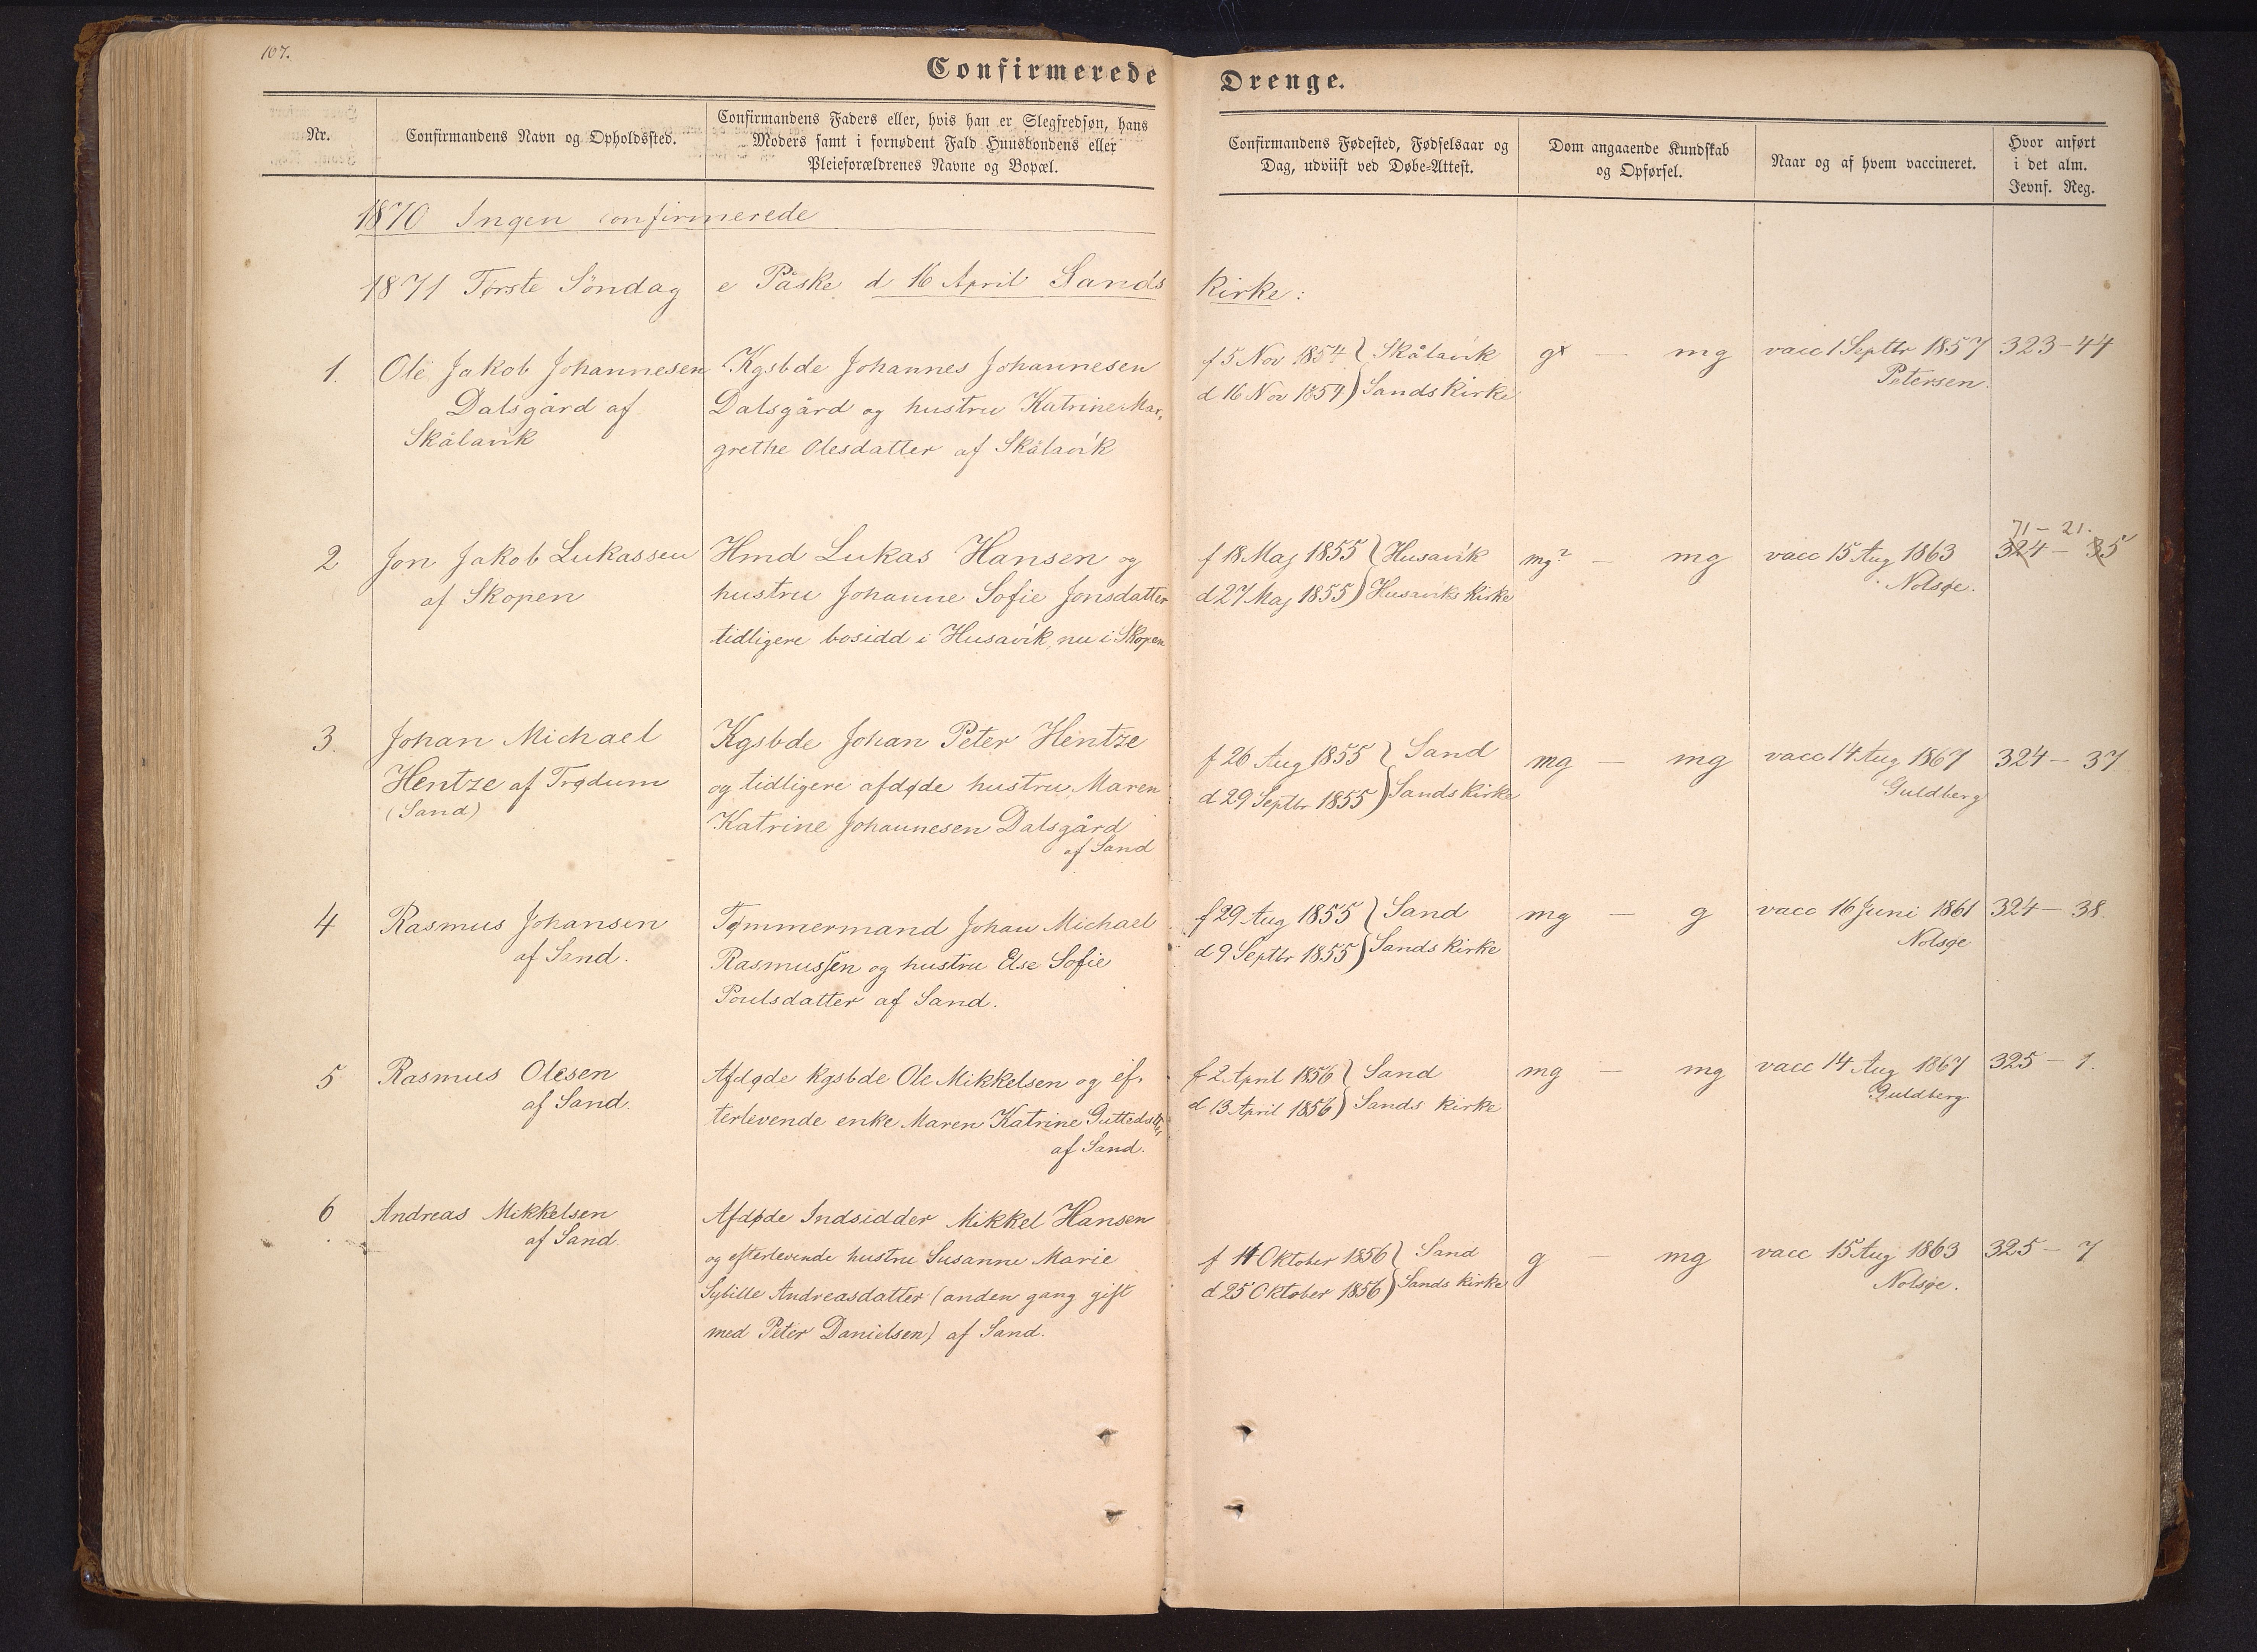 107.
Confirmerede Drenge.
Nr.
Confirmandens Navn og Opholdssted.
Confirmandens Faders eller, hvis han er Slegfredsøn, hans
Moders samt i fornødent Fald Huusbondens eller
Pleieforældrenes Navne og Bopæl.
Confirmandens Fødested, Fødselsaar og
Dag, udviist ved Døbe-Attest.
Dom angaaende Kundskab
og Opførsel.
Naar og af hvem vaccineret.
Hvor anført
i det alm.
Jevnf. Reg.
1870 Ingen confirmerede
1871 Første Söndag e Påske d 16 April Sands Kirke:
1.
Ole Jakob Johannesen
Dalsgård af
Skålavík
Kgsbde Johannes Johannesen
Dalsgård og hustru Katrine Mar-
grethe Olesdatter af Skålavík
f 5 Nov 1854 } Skålavík
d 16 Nov 1854 } Sands Kirke
gx — mg
vacc 1 Septbr 1857
Petersen.
323-44
2
Jon Jakob Lukassen
af Skopen
Hmd Lukas Hansen og
hustru Johanne Sofie Jonsdatter
tidligere bosidd i Husavík, nu i Skopen
f 18 Maj 1855 } Husavík
d 27 Maj 1855 } Husavíks Kirke
mg? — mg
vacc 15 Aug 1863
Nolsøe.
71 - 21.
324 - 35
3.
Johan Michael
Hentze af Trødum
(Sand)
Kgsbde Johan Peter Hentze
og tidligere afdøde hustru Maren
Katrine Johannesen Dalsgård
af Sand
f 26 Aug 1855 } Sand
d 29 Septbr 1855 } Sands Kirke
mg — mg
vacc 14 Aug 1867
Guldberg
324 - 37
4
Rasmus Johansen
af Sand.
Tømmermand Johan Michael
Rasmussen og hustru Else Sofie
Poulsdatter af Sand.
f 29 Aug 1855 } Sand
d 9 Septbr 1855 } Sands Kirke
mg — g
vacc 16 Juni 1861
Nolsøe
324 - 38.
5
Rasmus Olesen
af Sand.
Afdøde Kgsbde Ole Mikkelsen og ef-
terlevende enke Maren Katrine
af Sand.
f 2 April 1856 } Sand
d 13 April 1856 } Sands Kirke
mg — mg
vacc 14 Aug 1867
Guldberg
325 - 1.
6
Andreas Mikkelsen
af Sand
Afdøde Indsidder Mikkel Hansen
og efterlevende hustru Susanne Marie
Sybille Andreasdatter (anden gang gift
med Peter Danielsen) af Sand.
f Oktober 1856 } Sand
d 25 Oktober 1856 } Sands Kirke
g — mg
vacc 15 Aug 1863
Nolsøe.
325 - 7